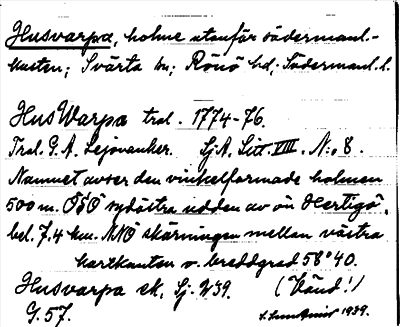 Husvarpa, holme utanför södermanl.-
kusten; Svärta sn; Rönö hd; Södermanl. l.
HusWarpa tral. 1774-76.
Tral. G. A. Lejonanker. Sj.A. Litt. VIII. N:o 8.
Namnet avser den vinkelformade holmen
500 m. OSO sydöstra udden av ön Hertigö,
bel. 7.4 km. NNO skärningen mellan västra
kartkanten o. breddgrad 58°40.
Husvarpa sk. Sj. W39. (Vänd!)
G. 57. 1939.